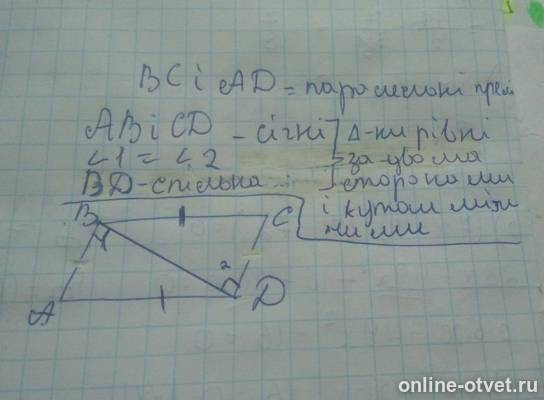 BC і AD = паралельні прямі
AB і CD - січні } Δ-ки рівні
∠1 = ∠2 за двома
BD - спільна сторонами
і кутом між
ними
B C
1 2
A D
online-otvet.ru